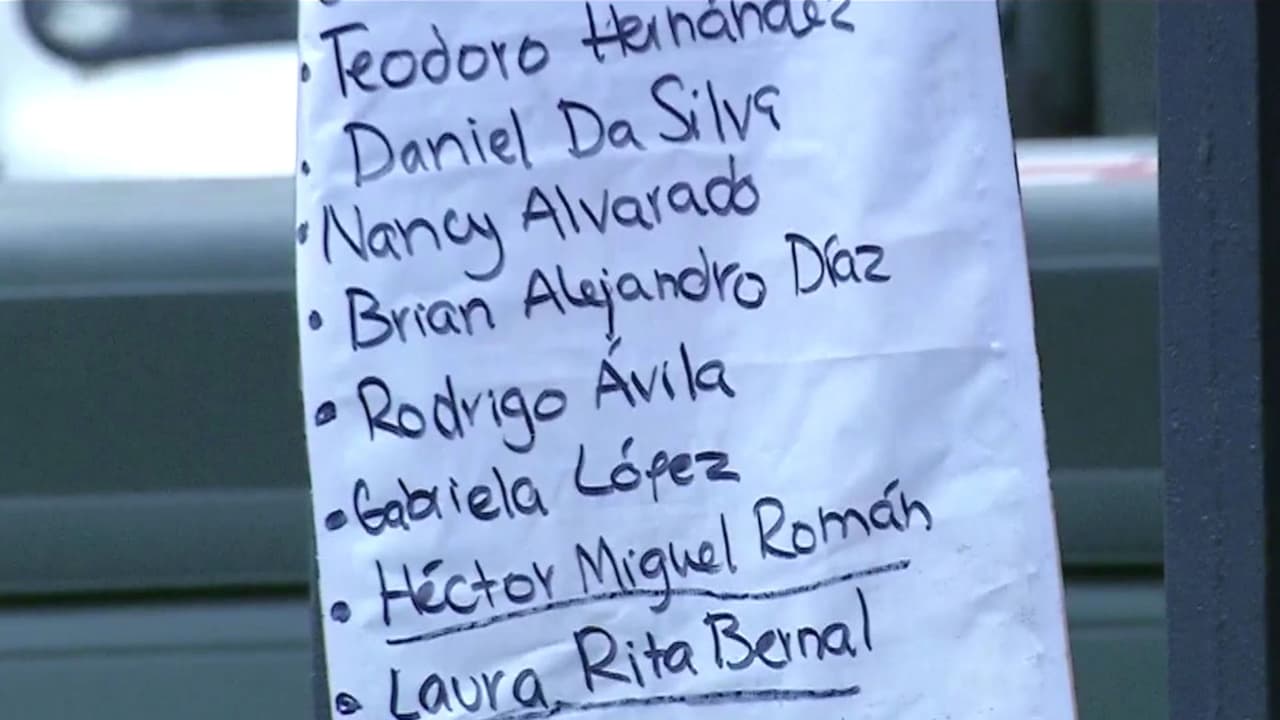 • Teodoro Hernández
• Daniel Da Silva
• Nancy Alvarado
• Brian Alejandro Díaz
• Rodrigo Ávila
• Gabriela López
• Héctor Miguel Román
• Laura Rita Bernal